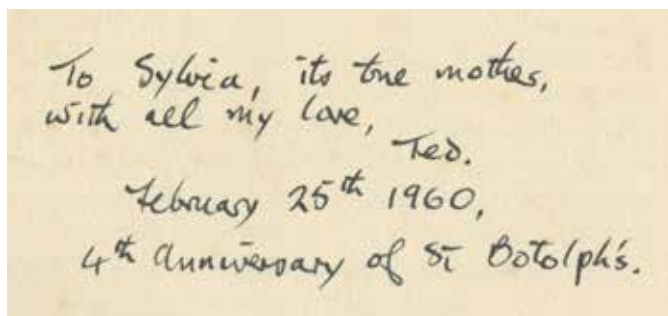 To Sylvia, its true mother,
with all my love,
Ted.
February 25th 1960,
4th Anniversary of St Botolph's.